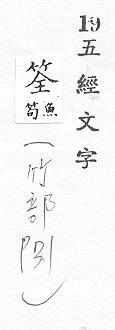 19 五經文字
筌 魚笱
(竹部 )